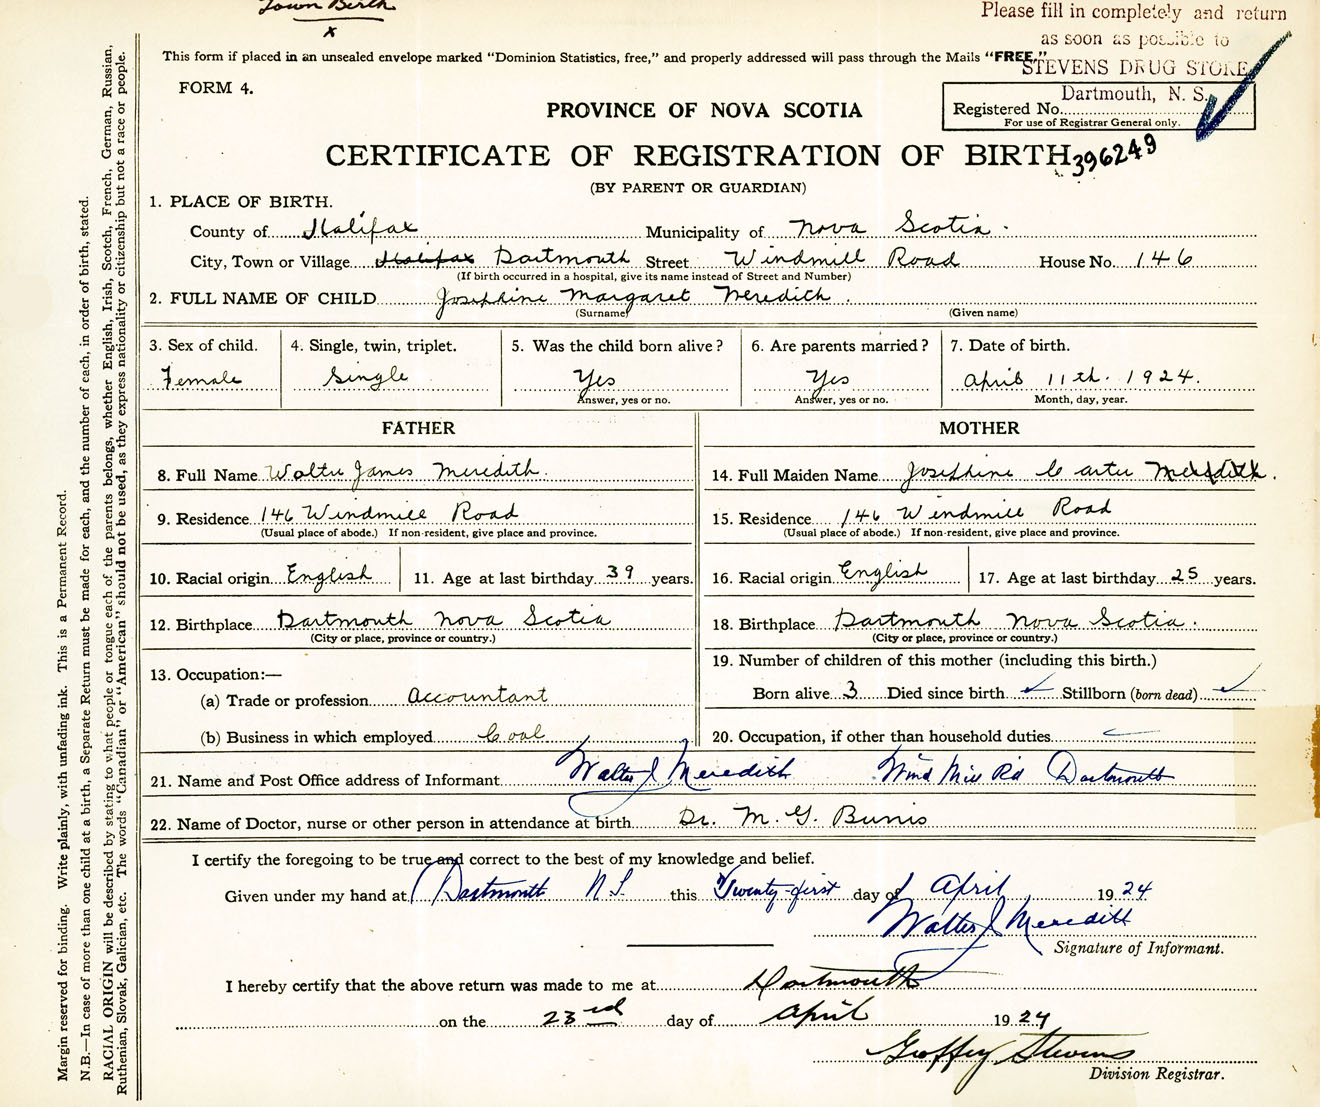 Town Birth
x
Please fill in completely and return
as soon as possible to
STEVENS DRUG STORE
Dartmouth, N. S.
This form if placed in an unsealed envelope marked "Dominion Statistics, free," and properly addressed will pass through the Mails "FREE."
FORM 4.
PROVINCE OF NOVA SCOTIA
Registered No.
For use of Registrar General only.
CERTIFICATE OF REGISTRATION OF BIRTH
396249
(BY PARENT OR GUARDIAN)
1. PLACE OF BIRTH.
County of Halifax Municipality of Nova Scotia.
City, Town or Village Halifax Dartmouth Street Windmill Road House No. 146
(If birth occurred in a hospital, give its name instead of Street and Number)
2. FULL NAME OF CHILD Josephine Margaret Meredith.
(Surname) (Given name)
3. Sex of child. 4. Single, twin, triplet. 5. Was the child born alive? 6. Are parents married? 7. Date of birth.
Female Single Yes Yes April 11th. 1924.
Answer, yes or no. Answer, yes or no. Month, day, year.
FATHER MOTHER
8. Full Name Walter James Meredith. 14. Full Maiden Name Josephine Carter Meredith.
9. Residence 146 Windmill Road 15. Residence 146 Windmill Road
(Usual place of abode.) If non-resident, give place and province. (Usual place of abode.) If non-resident, give place and province.
10. Racial origin English 11. Age at last birthday 39 years. 16. Racial origin English 17. Age at last birthday 25 years.
12. Birthplace Dartmouth Nova Scotia 18. Birthplace Dartmouth Nova Scotia.
(City or place, province or country.) (City or place, province or country.)
13. Occupation:— 19. Number of children of this mother (including this birth.)
(a) Trade or profession Accountant Born alive 3 Died since birth ✓ Stillborn (born dead) ✓
(b) Business in which employed Coal 20. Occupation, if other than household duties
21. Name and Post Office address of Informant Walter J Meredith Wind Mill Rd Dartmouth
22. Name of Doctor, nurse or other person in attendance at birth Dr. M. G. Burris
I certify the foregoing to be true and correct to the best of my knowledge and belief.
Given under my hand at Dartmouth N S. this Twenty-first day of April 1924
Walter J Meredith
Signature of Informant.
I hereby certify that the above return was made to me at Dartmouth
on the 23rd day of April 1924
Geoffry Stevens
Division Registrar.
Margin reserved for binding. Write plainly, with unfading ink. This is a Permanent Record.
N.B.—In case of more than one child at a birth, a Separate Return must be made for each, and the number of each, in order of birth, stated.
RACIAL ORIGIN will be described by stating to what people or tongue each of the parents belongs, whether English, Irish, Scotch, French, German, Russian,
Ruthenian, Slovak, Galician, etc. The words "Canadian" or "American" should not be used, as they express nationality or citizenship but not a race or people.